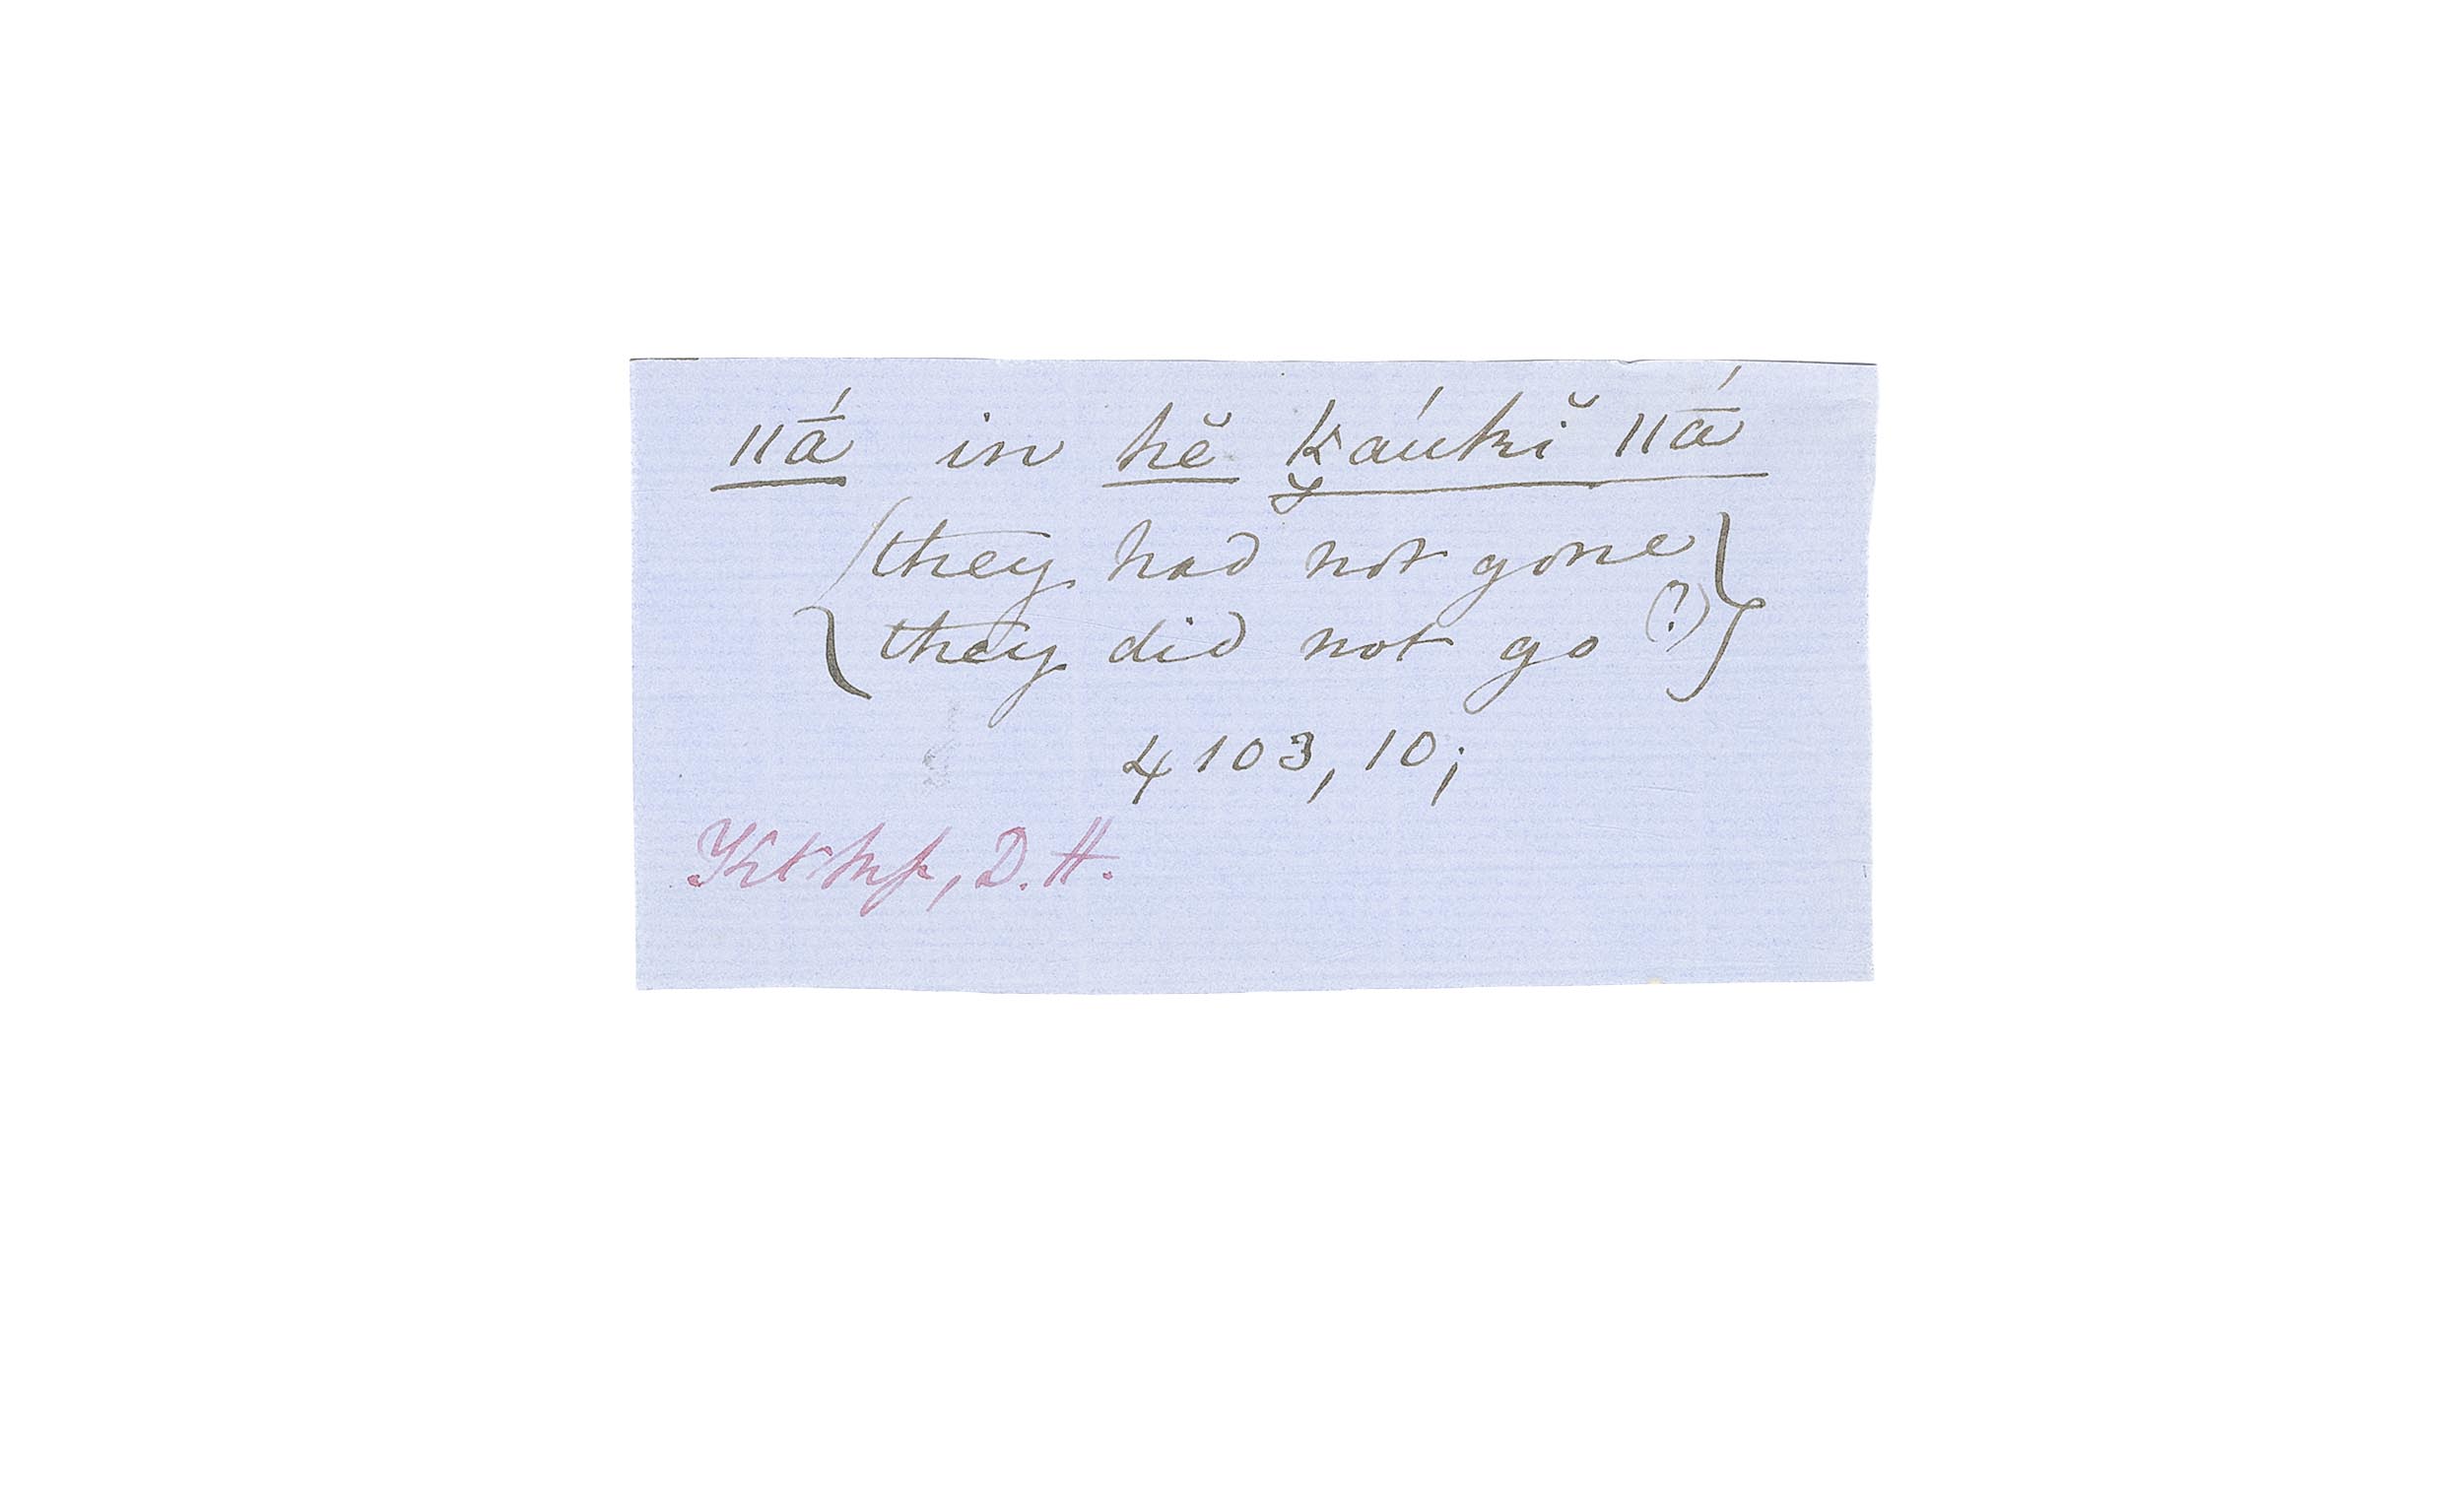 ǁā́ in hĕ k̰áukĭ̯ ǁā́
{they had not gone
they did not go (?)}
4103, 10;
D. H.